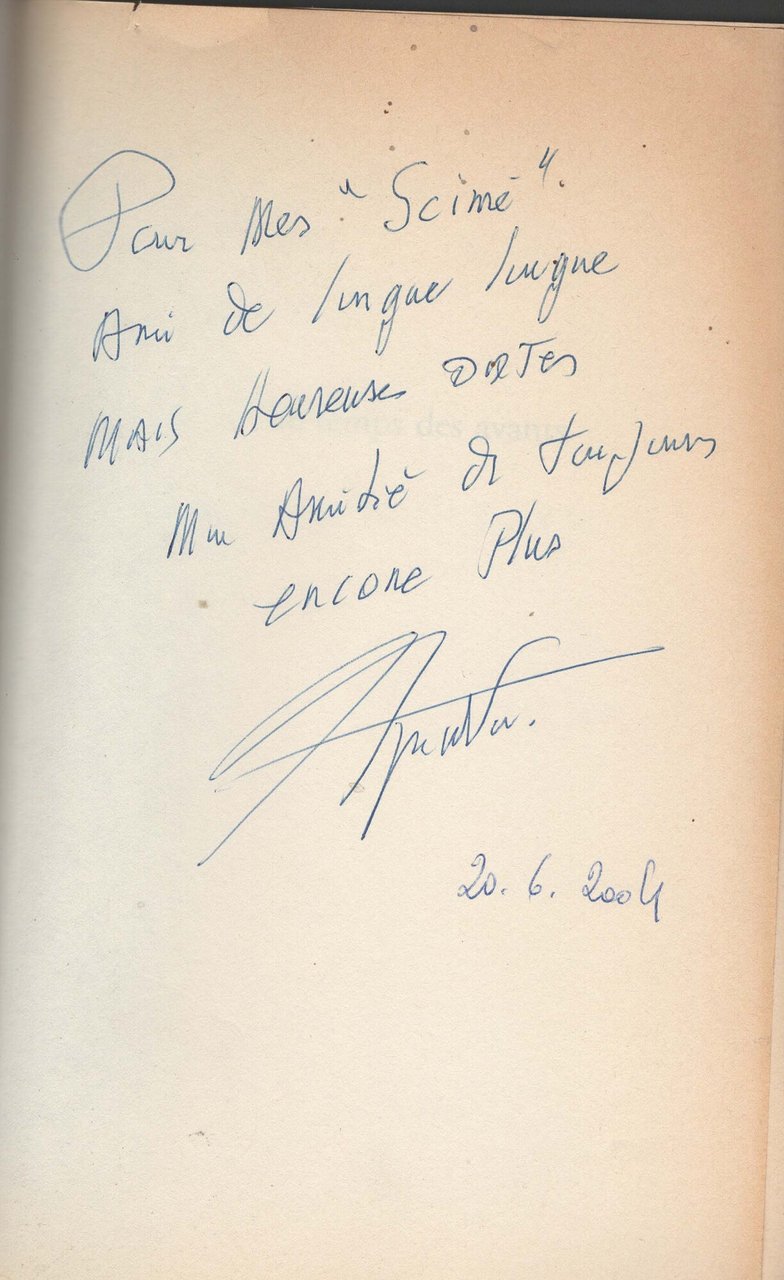 Pour Mes "Scimé".
Ami de longue longue
MAIS Heureuses DATES
Mon Amitié de toujours
encore Plus
20.6.2004